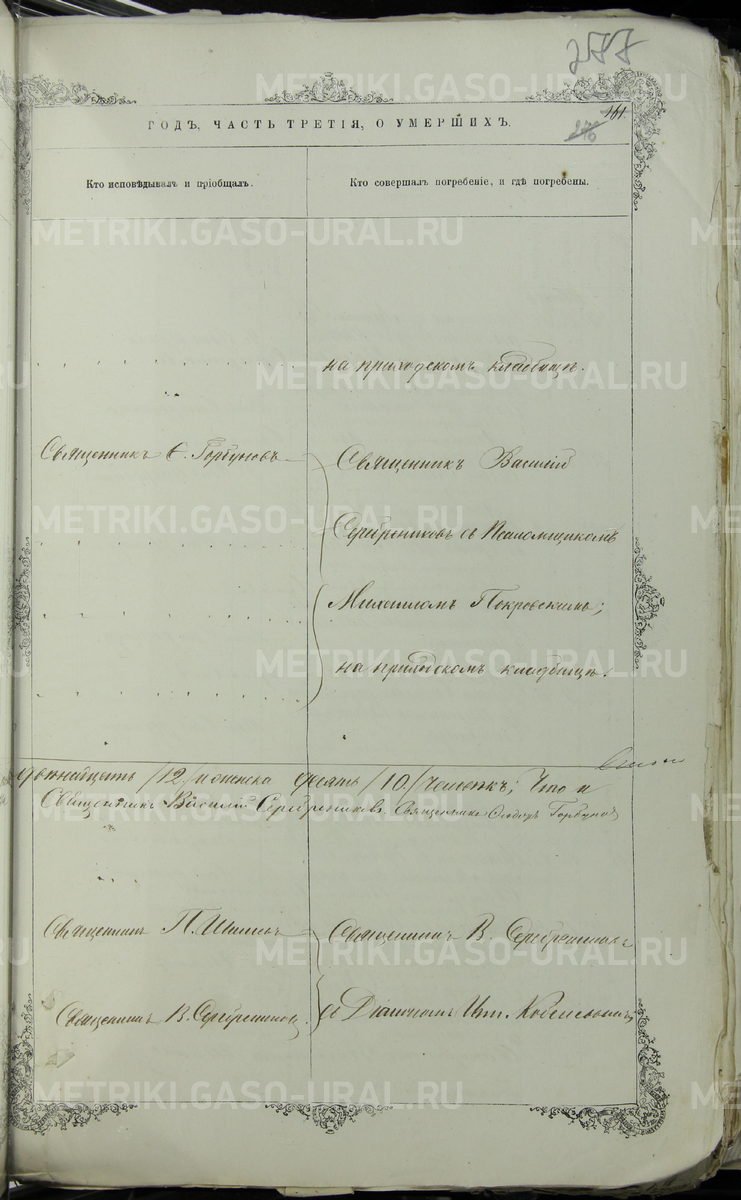 277
161
276
ГОДЪ, ЧАСТЬ ТРЕТІЯ, О УМЕРШИХЪ.
Кто исповѣдывалъ и пріобщалъ.
Кто совершалъ погребеніе, и гдѣ погребены.
на приходскомъ кладбищѣ.
Священникъ Ѳ. Горбуновъ
Священникъ Василій
Серебрениковъ съ Псаломщикомъ
Михаиломъ Покровскимъ;
на приходскомъ кладбищѣ.
двенадцать /12/ и женска десять /10/ человѣкъ; Что и
Священникъ Василій Серебрениковъ. Священникъ Ѳеодоръ Горбуновъ
Священникъ П.
Священникъ В. Серебрениковъ
Священникъ В. Серебрениковъ
съ Діакономъ
METRIKI.GASO-URAL.RU